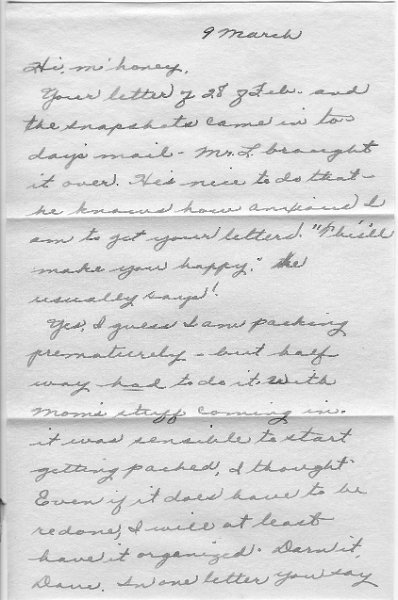 9 March
Hi, m'honey,
Your letter of 28 of Feb. and
the snapshots came in to-
day's mail - Mr. L. brought
it over. He's nice to do that -
he knows how anxious I
am to get your letters. "This'll
make you happy." he
usually says!
Yes, I guess I am packing
prematurely - but half
way had to do it with
Mom's stuff coming in.
it was sensible to start
getting packed, I thought
Even if it does have to be
redone, I will at least
have it organized. Darn it,
Dave. In one letter you say